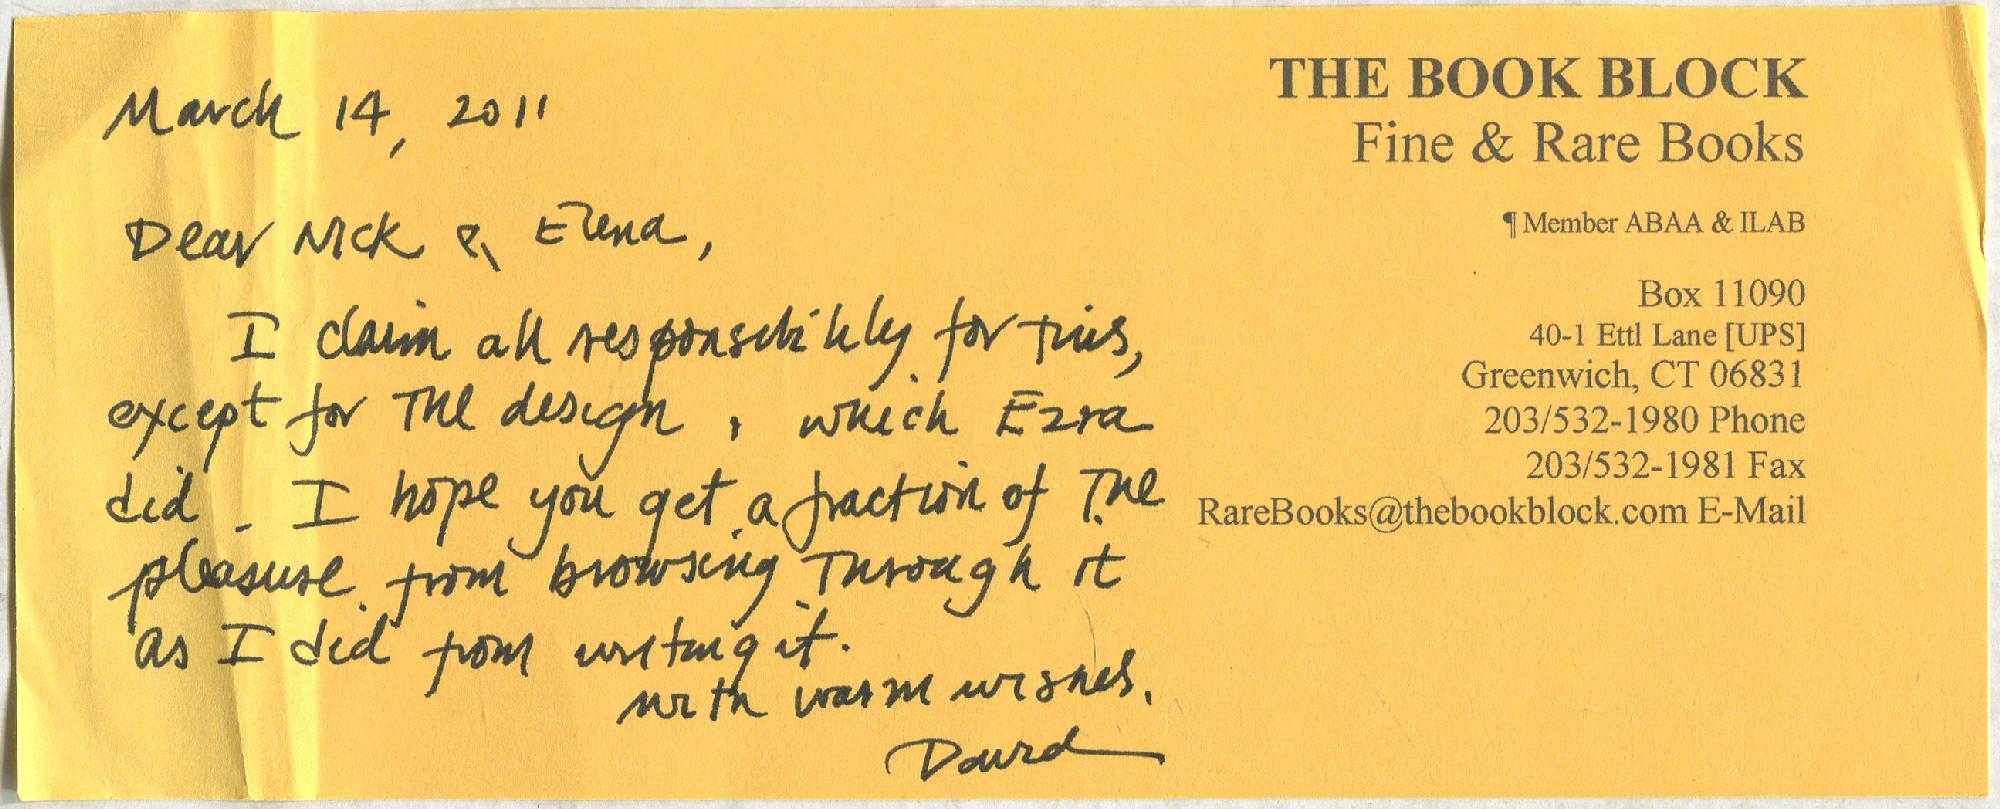 March 14, 2011
Dear Nick & Elena,
I claim all responsibility for this,
except for the design, which Ezra
did. I hope you get a fraction of the
pleasure from browsing through it
as I did from writing it.
with warm wishes,
David
THE BOOK BLOCK
Fine & Rare Books
¶ Member ABAA & ILAB
Box 11090
40-1 Ettl Lane [UPS]
Greenwich, CT 06831
203/532-1980 Phone
203/532-1981 Fax
RareBooks@thebookblock.com E-Mail